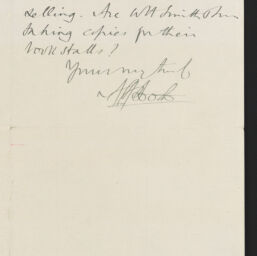 selling. Are WH Smith & Son
taking copies for their
bookstalls?
Yours very truly